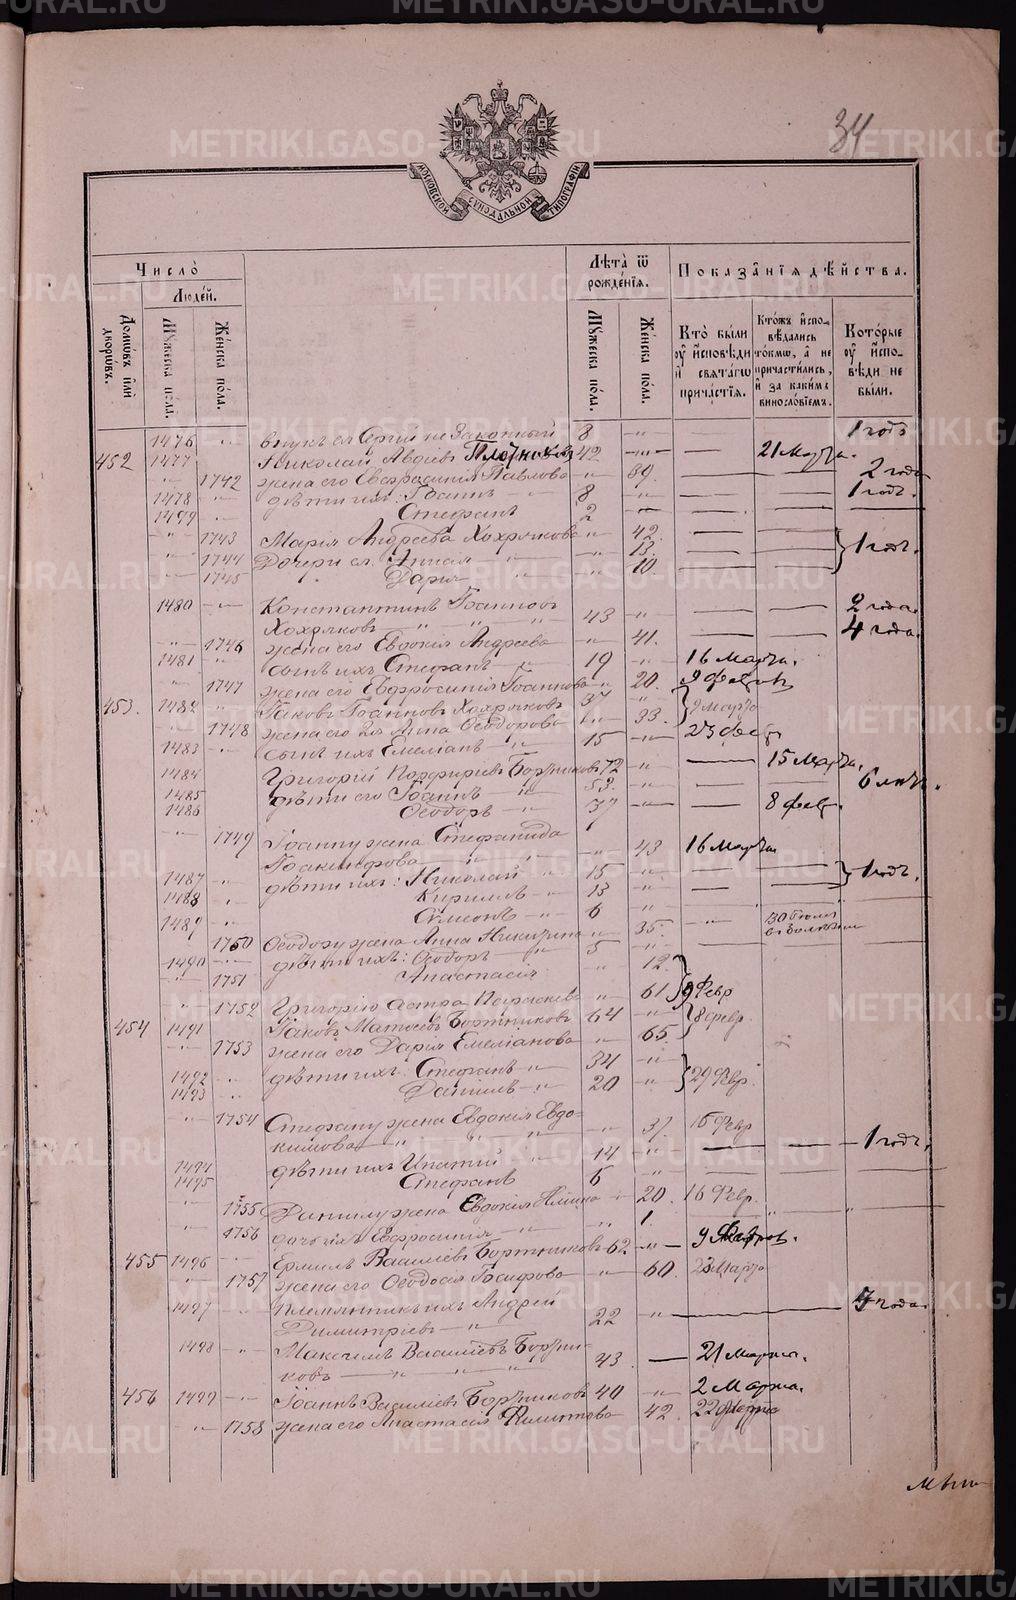 34
МОСКОВСКОЙ СѴНОДАЛЬНОЙ ТИПОГРАФІИ
Число̀
Людей.
Домѡвъ и҆лѝ дворѡвъ.
Мꙋжеска по́ла.
Же́нска по́ла.
Лѣ́та ѿ рожде́нїѧ.
Мꙋжеска по́ла.
Же́нска по́ла.
Показа́нїѧ дѣ́йства.
Кто̀ бы́ли оу҆ и҆сповѣди и҆ свѧта́гѡ прича́стїѧ.
Кто́жъ и҆сповѣдались то́кмѡ, а҆ не причасти́лись, и҆ за каки́мъ винослѡ́вїемъ.
Кото́рые оу҆ и҆сповѣди не бы́ли.
1476 внукъ ея Сергий не Законный 8 1 годъ
452 1477 Николай Авдіевъ Плотниковъ 42 21 Марта.
1742 жена его Евфрасинія Павлова 39. 2 года
1478 дѣти ихъ: Іоаннъ 8 1 годъ.
1479 Стефанъ 2
1743 Марія Андреева Хохрякова 42.
1744 Дочери ея Анна 13. 1 годъ.
1745 Дарья 10
1480 Константинъ Іоанновъ 2 года.
Хохряковъ 43
1746 жена его Евдокія Андреева 41. 4 года.
1481 сынъ ихъ Стефанъ 19 16 Марта.
1747 жена его Евфросинія Іоаннова 20. 9 февраля
453. 1482 Іаковъ Іоанновъ Хохряковъ 37
1748 жена его Анна Ѳеодорова 33. Марта
1483 сынъ ихъ Емеліанъ 15 23 фев.
1484 Григорій Порфиріевъ Бортниковъ 72 15 Марта.
1485 дѣти его Іоаннъ 53. 6 лѣтъ.
1486 Ѳеодоръ 37 8 фев.
1749 Іоанну жена Стефанида
43 16 Марта.
1487 дѣти ихъ: Николай 15 1 годъ.
1488 Кириллъ 13
1489 Сѵмеонъ 6
1750 Ѳеодору жена Анна Никитина 35.
1490 дѣти ихъ: Ѳеодоръ 5
1751 Анастасія 12.
1752 Григорію сестра 61 9 Февр
454 1491 Іаковъ Матѳеевъ Бортниковъ 64 8 февр.
1753 жена его Дарія Емеліанова 65.
1492 дѣти ихъ: Стефанъ 34
1493 Даніилъ 20 29 Февр.
1754 Стефану жена Евдокія Евдо-
кимова 37. 16 Февр
1494 дѣти ихъ Ипатій 14 1 годъ.
1495 Стефанъ 6
1755 Даніилу жена Евдокія 20. 16 Февр.
1756 дочь Евфросинія 1
455 1496 Ермилъ Василіевъ Бортниковъ 62 9 Февр.
1757 жена его Ѳеодосія Іосифова 60. Марта
1497 племянникъ ихъ Андрей 7 года.
Димитріевъ 22
1498 Максимъ Василіевъ Бортни-
ковъ 43 21 Марта.
456 1499 Іоаннъ Василіевъ Бортниковъ 40 2 Марта.
1758 жена его Анастасія Филиппова 42. 22 Марта
METRIKI.GASO-URAL.RU